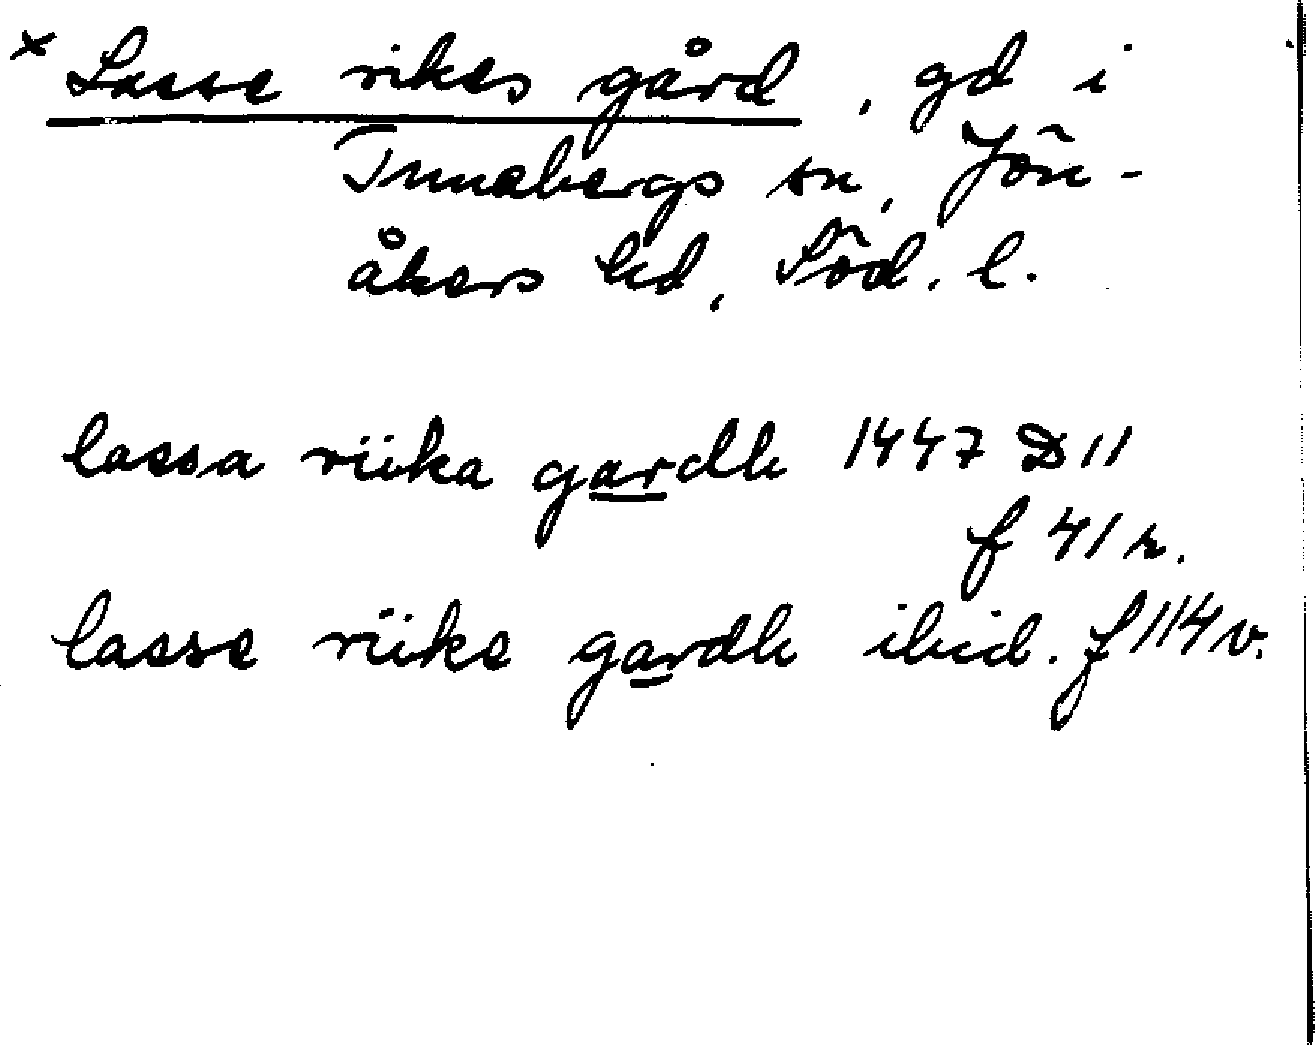 × Lasse rikes gård, gd i
Tunabergs sn, Jön-
åkers hd, Söd. l.
lassa riika gardh 1447 D 11
f 41 r.
lasse riike gardh ibid. f 114 v.